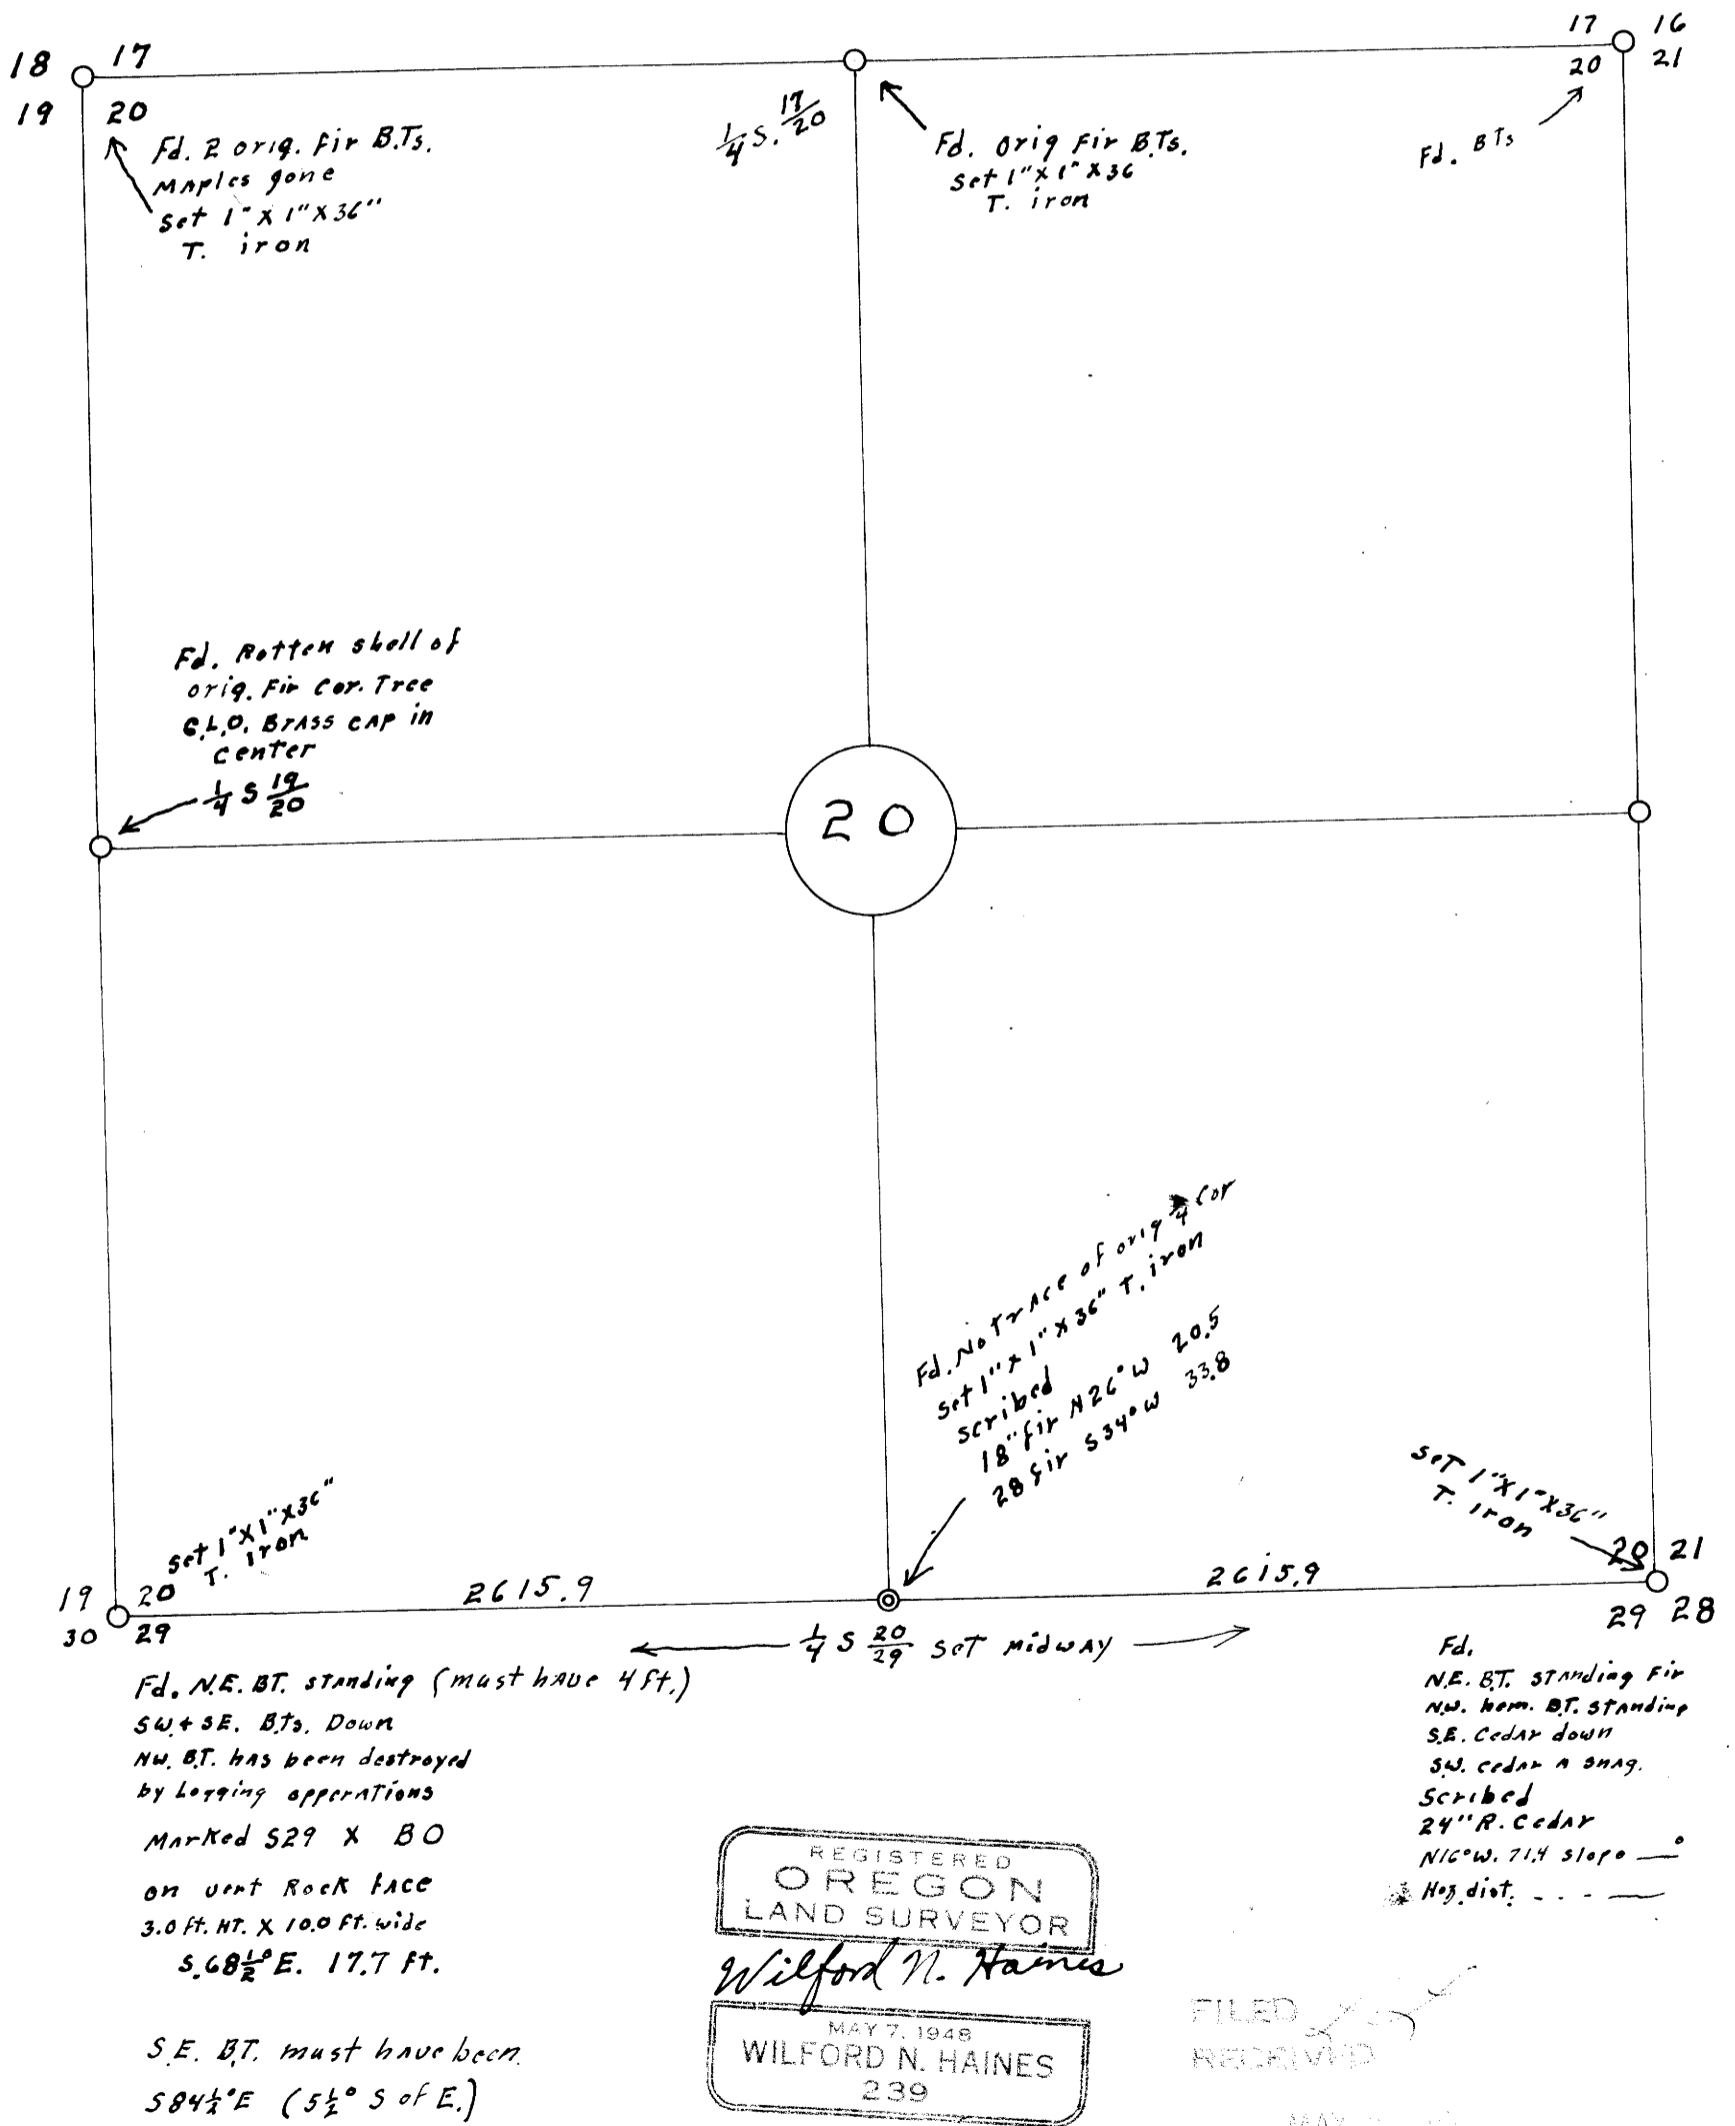 18 17
19 20
Fd. 2 orig. fir B.Ts.
Maples gone
Set 1" X 1" X 36"
T. iron
1/4 S. 17/20
Fd. orig Fir B.Ts.
Set 1" X 1" X 36
T. iron
17 16
20 21
Fd. BTs
Fd. Rotten shell of
orig. Fir Cor. Tree
G.L.O. Brass cap in
center
1/4 S 19/20
20
Fd. No trace of orig 1/4 Cor
set 1" X 1" X 36" T. iron
scribed
18" fir N26°W 20.5
28 fir S34°W 33.8
set 1" X 1" X 36"
T. iron
19 20
30 29
2615.9
2615.9
Set 1" X 1" X 36"
T. iron
20 21
29 28
1/4 S 20/29 set Midway
Fd. N.E. BT. standing (must have 4 ft.)
SW. + SE. B.Ts. Down
NW. B.T. has been destroyed
by Logging opperations
Marked S29 X BO
on vert Rock face
3.0 ft. HT. X 10.0 ft. wide
S.68 1/2° E. 17.7 ft.
S.E. B.T. must have been
S84 1/2°E (5 1/2° S of E.)
Fd.
N.E. B.T. standing Fir
N.W. hem. B.T. standing
S.E. Cedar down
S.W. cedar a snag.
Scribed
24" R. Cedar
N16°W. 71.4 slope — °
Hoz. dist. - - - —
REGISTERED
OREGON
LAND SURVEYOR
Wilford N. Haines
MAY 7, 1948
WILFORD N. HAINES
239
FILED
RECEIVED
MAY